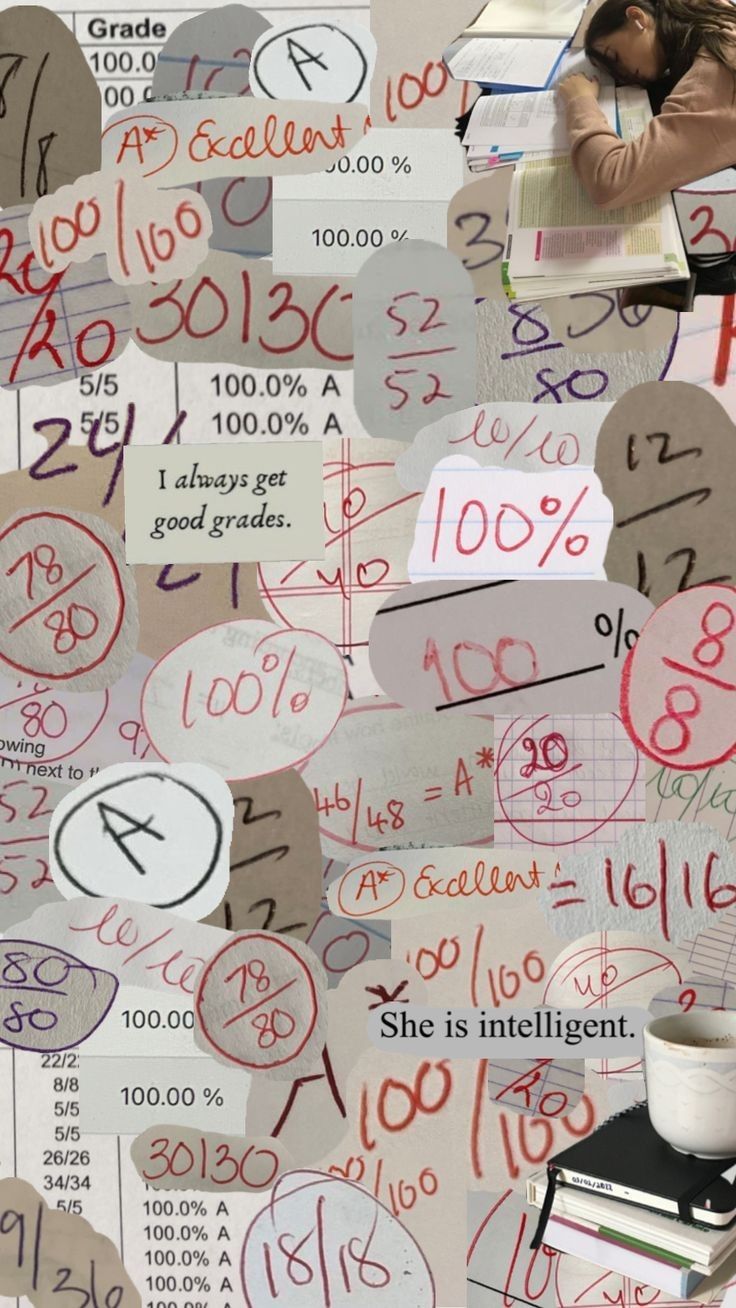 Grade
100.0
A
100
A* Excellent
00.00 %
100/100
100.00 %
/20
30/30
52
52
8
80
5/5 100.0% A
5/5 100.0% A
24/
10/10
12
12
I always get
good grades.
40
100%
78
80
100
%
8
8
100%
80
owing
m next to
46/48 = A*
20
20
10/10
52
52
A
2
12
A* Excellent
= 16/16
10/10
80
80
78
80
100/100
40
100.00
She is intelligent.
22/2
8/8
5/5
5/5
26/26
34/34
5/5
100.00 %
100/100
/20
30/30
/100
100.0% A
100.0% A
100.0% A
100.0% A
9/36
18/18